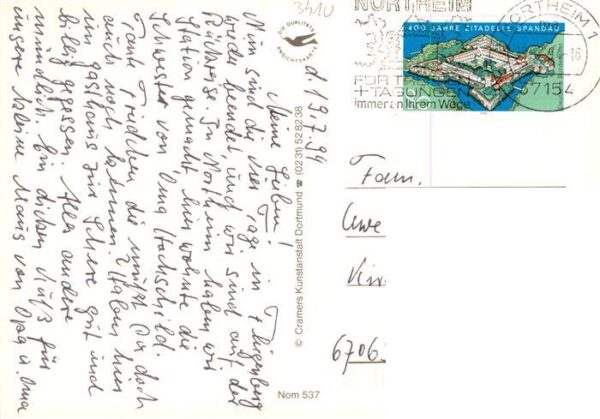 d 19.7.94
Meine Lieben!
Nun sind die vier Tage in
wieder beendet, und wir sind auf der
Rückreise. In Northeim haben wir
Station gemacht, hier wohnte die
Schwester von Oma Hochschild.
Tante Friedchen die müßt Ihr doch
auch noch kennen. Haben hier
im Gasthaus zur Schere gut und
billig gegessen. Alles andere
mündlich. Ein dicken Kuß für
unsere kleine Maus von Opa u. Oma
3410
DIE QUALITÄTS
ANSICHTSKARTE
© Cramers Kunstanstalt Dortmund ☎ (0231) 528238
Nom 537
NORTHEIM
FÜR
+TAGUNGEN
immer an Ihrem Wege
400 JAHRE ZITADELLE SPANDAU
NORTHEIM 1
16
37154
Fam.
Uwe
6706